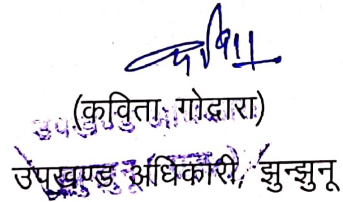 कविता
(कविता गोद्वारा)
उपखण्ड अधिकारी, झुन्झुनू